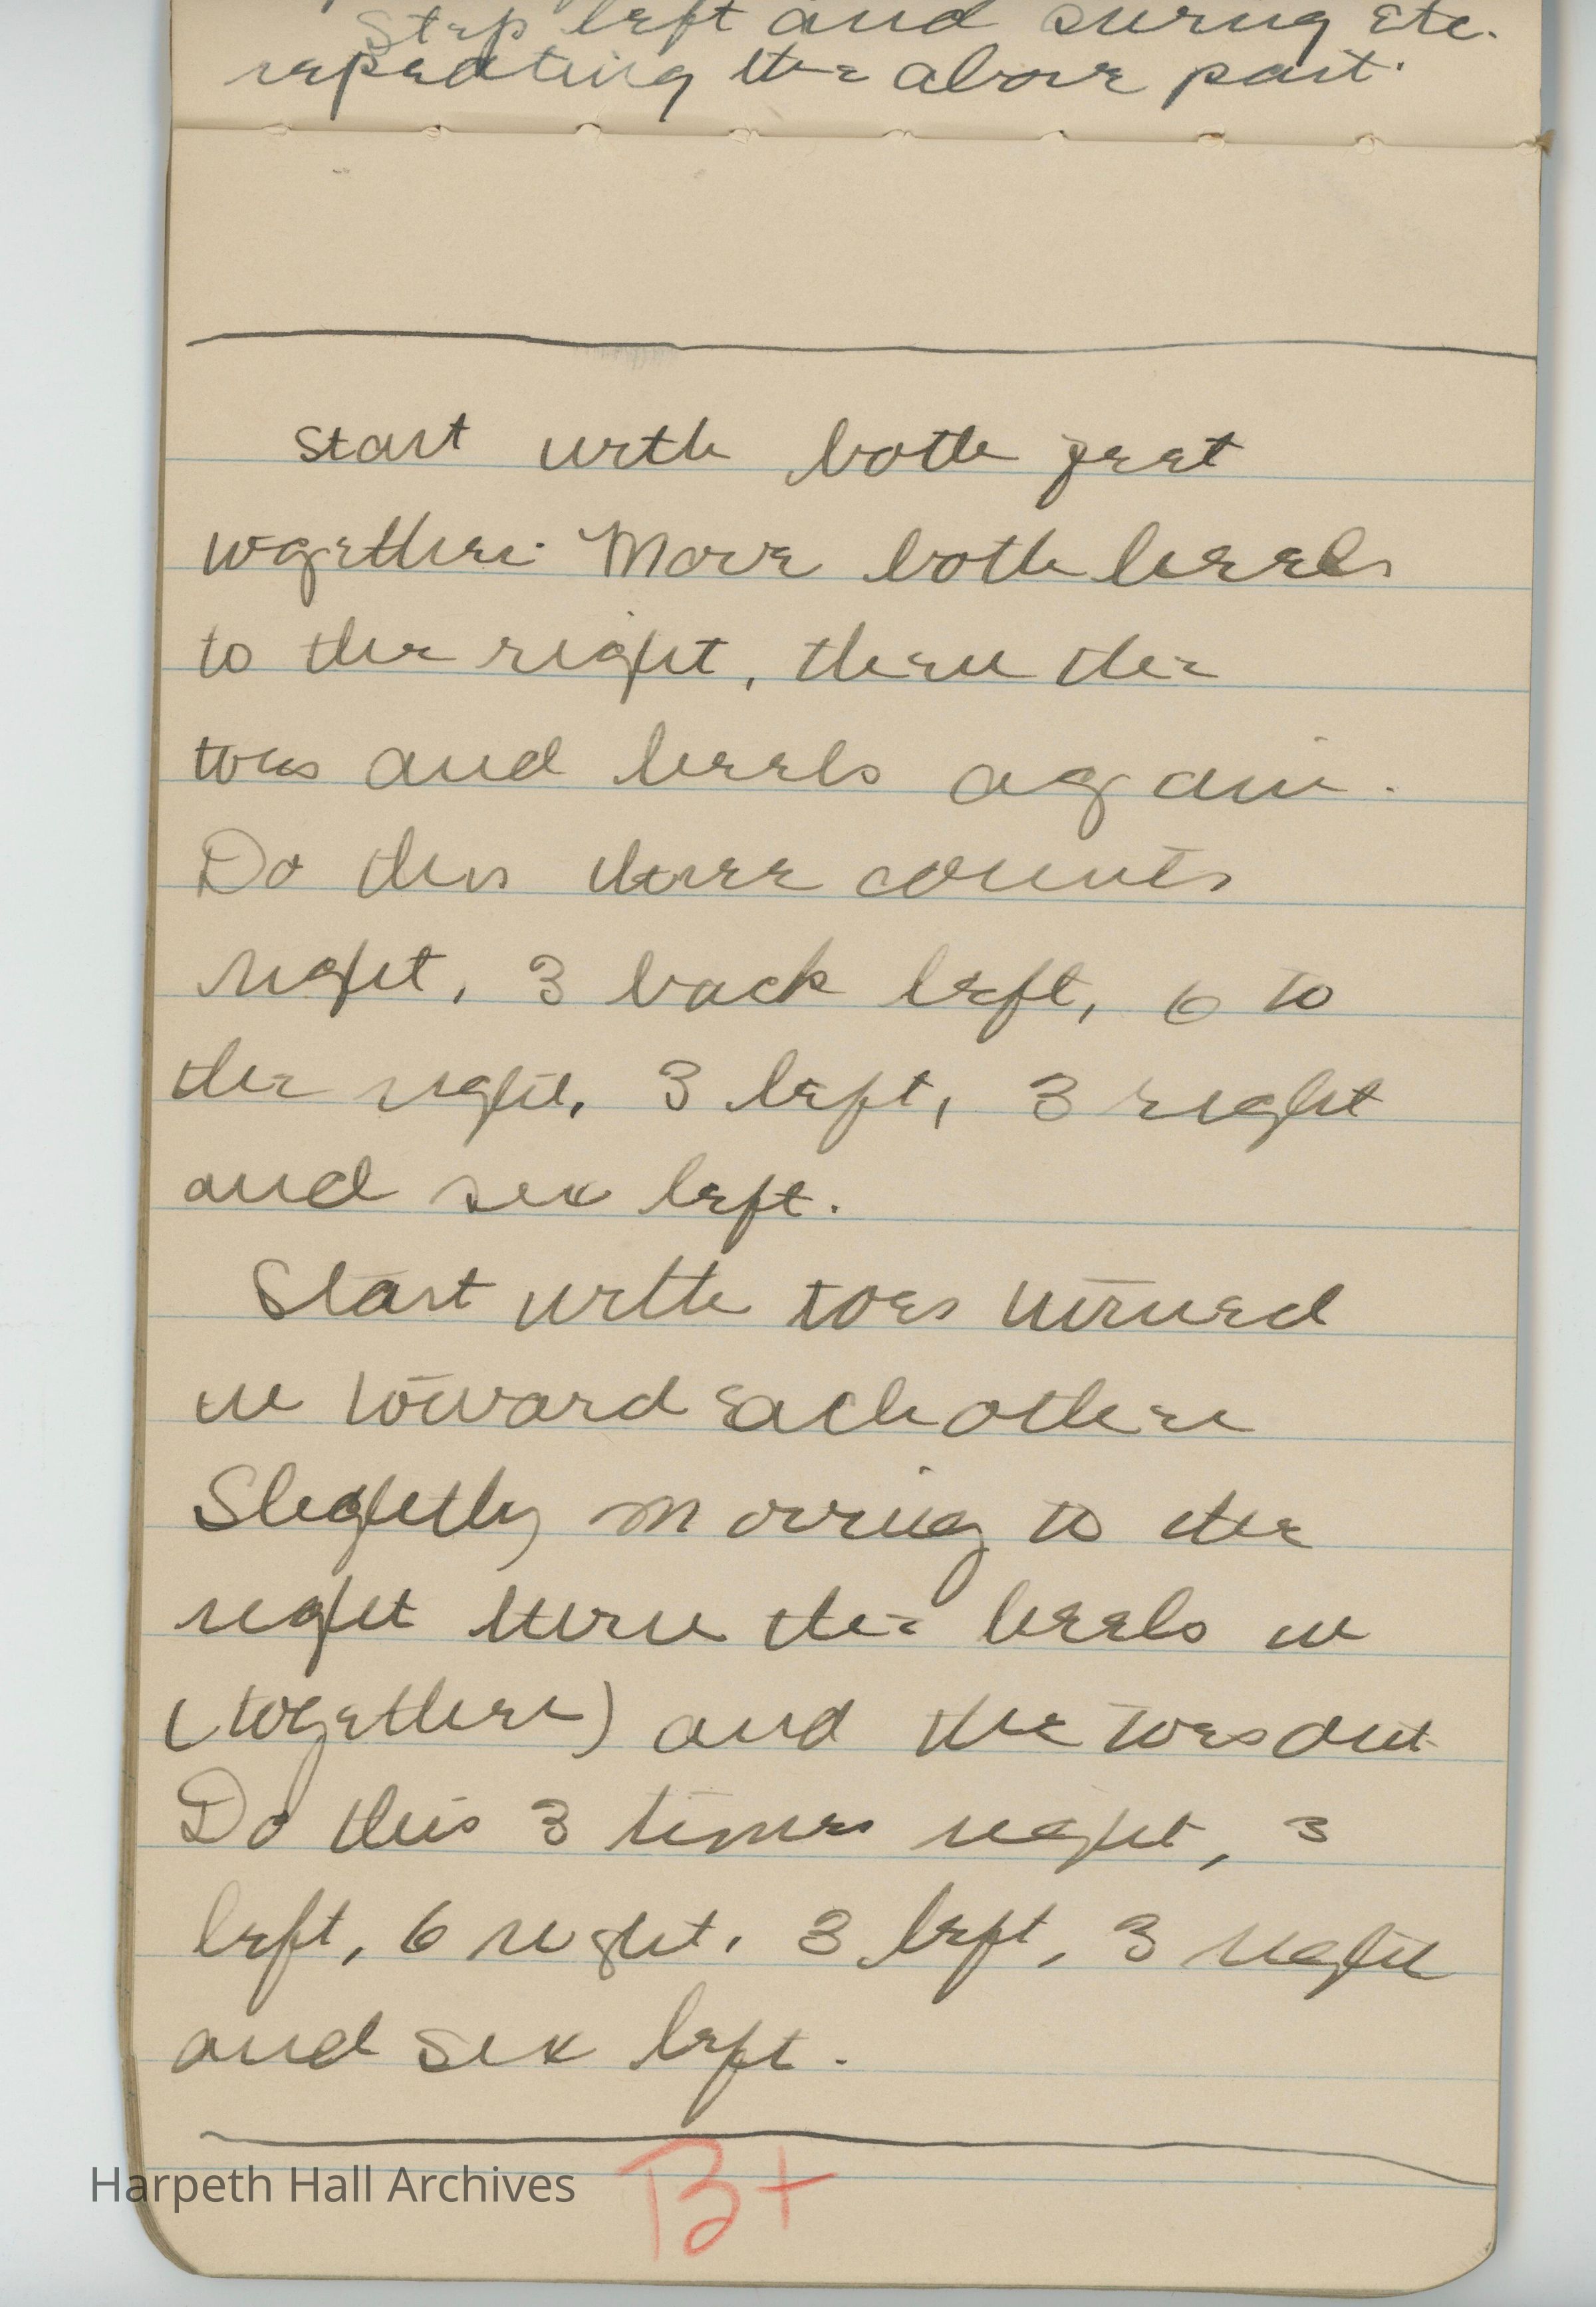 Step left and swing etc.
repeating the above part.
start with both feet
together. Move both heels
to the right, then the
toes and heels again.
Do this three counts
right, 3 back left, 6 to
the right, 3 left, 3 right
and six left.
Start with toes turned
in toward each other
Slightly moving to the
right turn the heels in
(together) and the toes out
Do this 3 times right, 3
left, 6 right, 3 left, 3 right
and six left.
Harpeth Hall Archives
B+